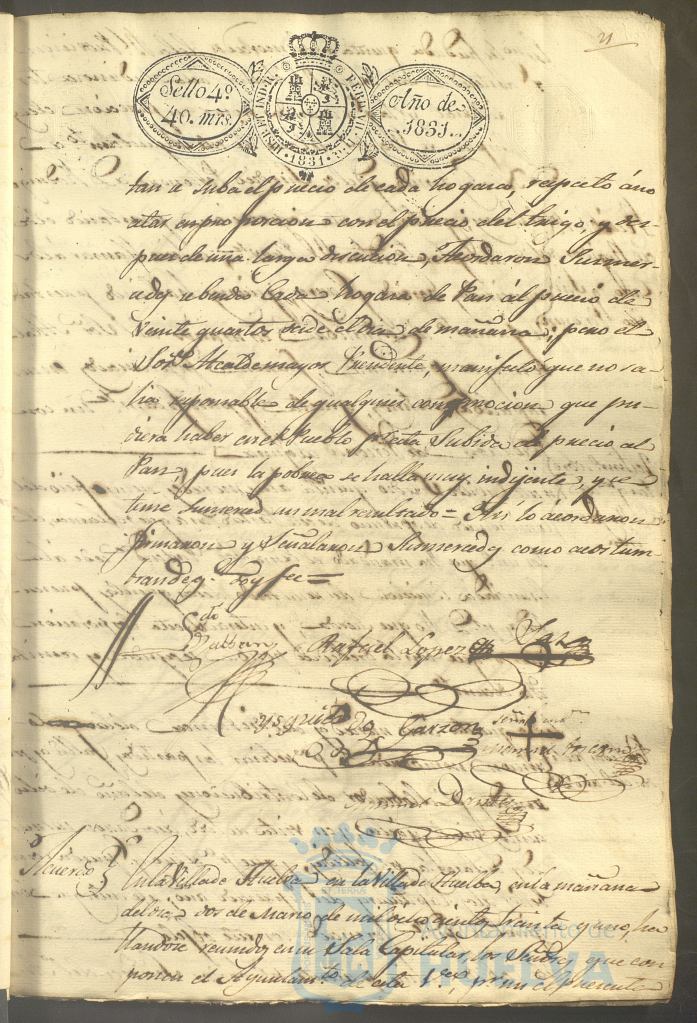 21
Sello 4º
40. mrs.
HISP. ET IND. R. FERD. VII. D. G.
1831
Año de
1831.
tan a suba el precio de cada hogaza, respecto á no
estar en proporcion con el precio del trigo, y des-
pues de una larga discucion, Acordaron Sus mer-
cedes se benda Cada hogaza de Pan al precio de
veinte quartos desde el dia de mañana; pero el
Sor. Alcalde mayor Precidente, manifestó que no sa-
lia responsable de qualquier conmocion que pu-
diera haber en el Pueblo pr. esta Subida de precio al
Pan, pues la pobreza se halla muy indijente, y se
teme Sumerced un mal resultado = Asi lo acordaron
firmaron y Señalaron Sus mercedes como acostum
bran de q. doy fee =
Rafael Lopez
Garzon
Señal
Acuerdo
En la Villa de Huelva en la Villa de Huelba, en la mañana
del dia dos de Marzo de mil ocho cientos treinta y uno, ha
llandose reunidos en su Sala Capitular los Sres. que com
ponen el Ayuntamto. de esta Va., pr. mi el presente
Ayuntamiento de
HUELVA